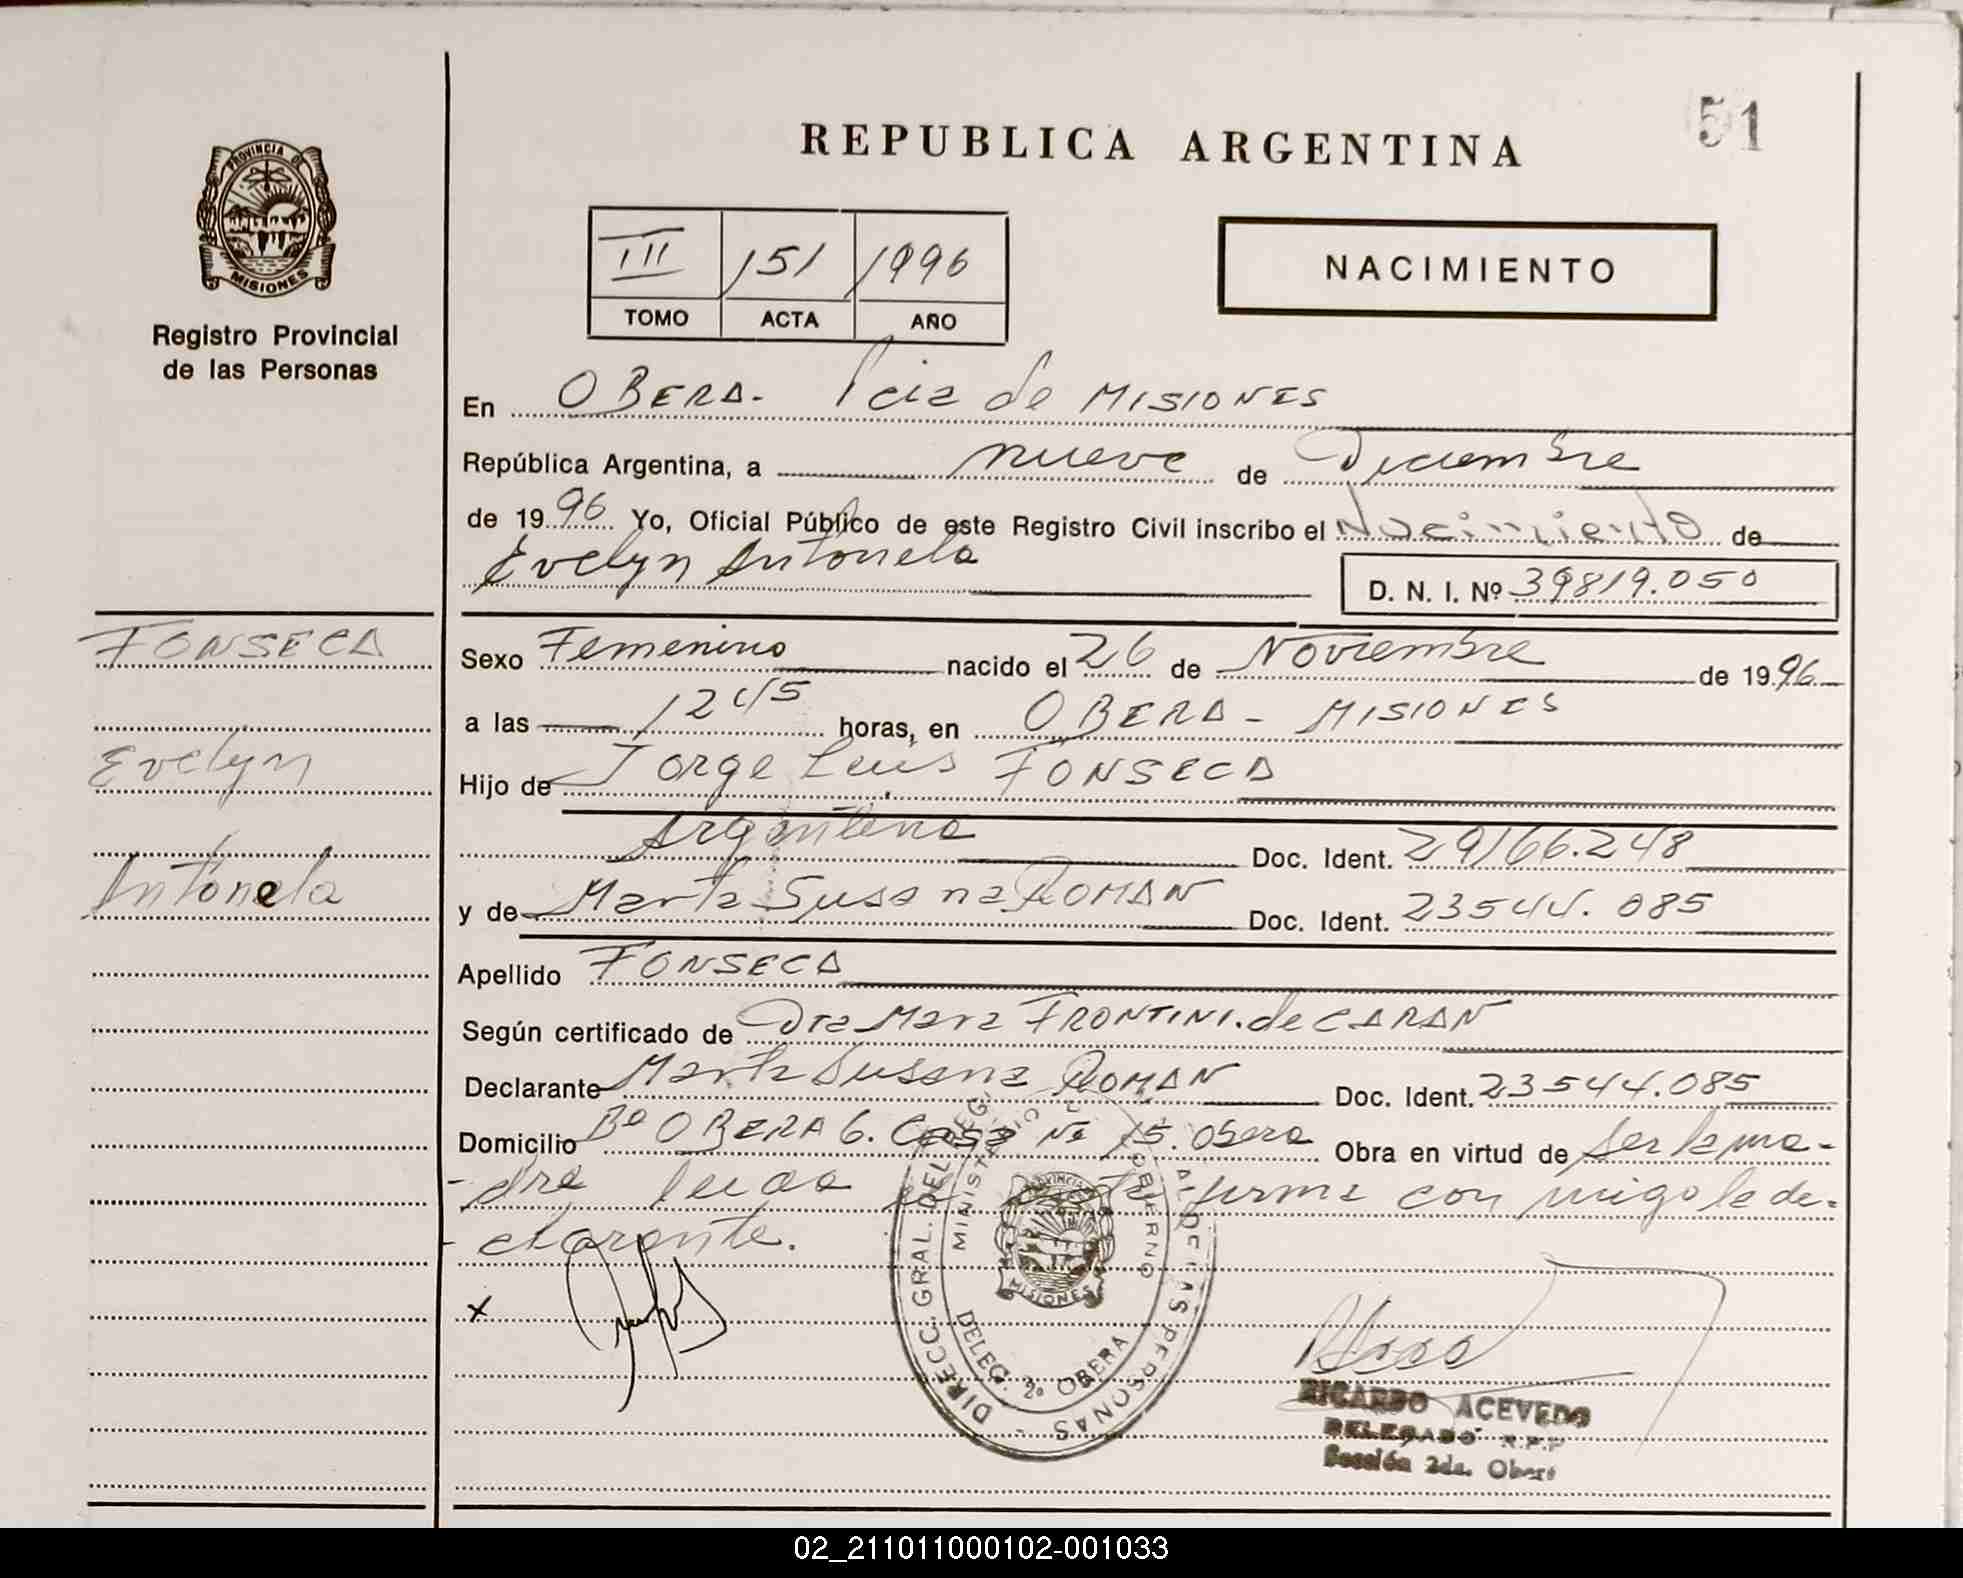 51
REPUBLICA ARGENTINA
PROVINCIA DE
MISIONES
Registro Provincial
de las Personas
III 151 1996
TOMO ACTA AÑO
NACIMIENTO
En OBERA - Pcia de MISIONES
República Argentina, a nueve de Diciembre
de 1996 Yo, Oficial Público de este Registro Civil inscribo el Nacimiento de
Evelyn Antonela
D. N. I. Nº 39819.050
FONSECA
Evelyn
Antonela
Sexo Femenino nacido el 26 de Noviembre de 1996
a las 1245 horas, en OBERA - MISIONES
Hijo de Jorge Luis FONSECA
Argentino Doc. Ident. 29166.248
y de Marta Susana ROMAN Doc. Ident. 23544.085
Apellido FONSECA
Según certificado de Dra Mara FRONTINI. de CARAN
Declarante Marta Susana ROMAN Doc. Ident. 23544.085
Domicilio Bº OBERA 6. Casa Nº 15. Obera Obra en virtud de ser la ma-
-dre leida el acta firma con migo la de-
-clarante.
x
DIRECC. GRAL. DEL REG. DE LAS PERSONAS
MINISTERIO GOBIERNO
PROVINCIA
MISIONES
DELEG. 2ª OBERA
RICARDO ACEVEDO
DELEGADO R.P.P
Sección 2da. Oberá
02_211011000102-001033